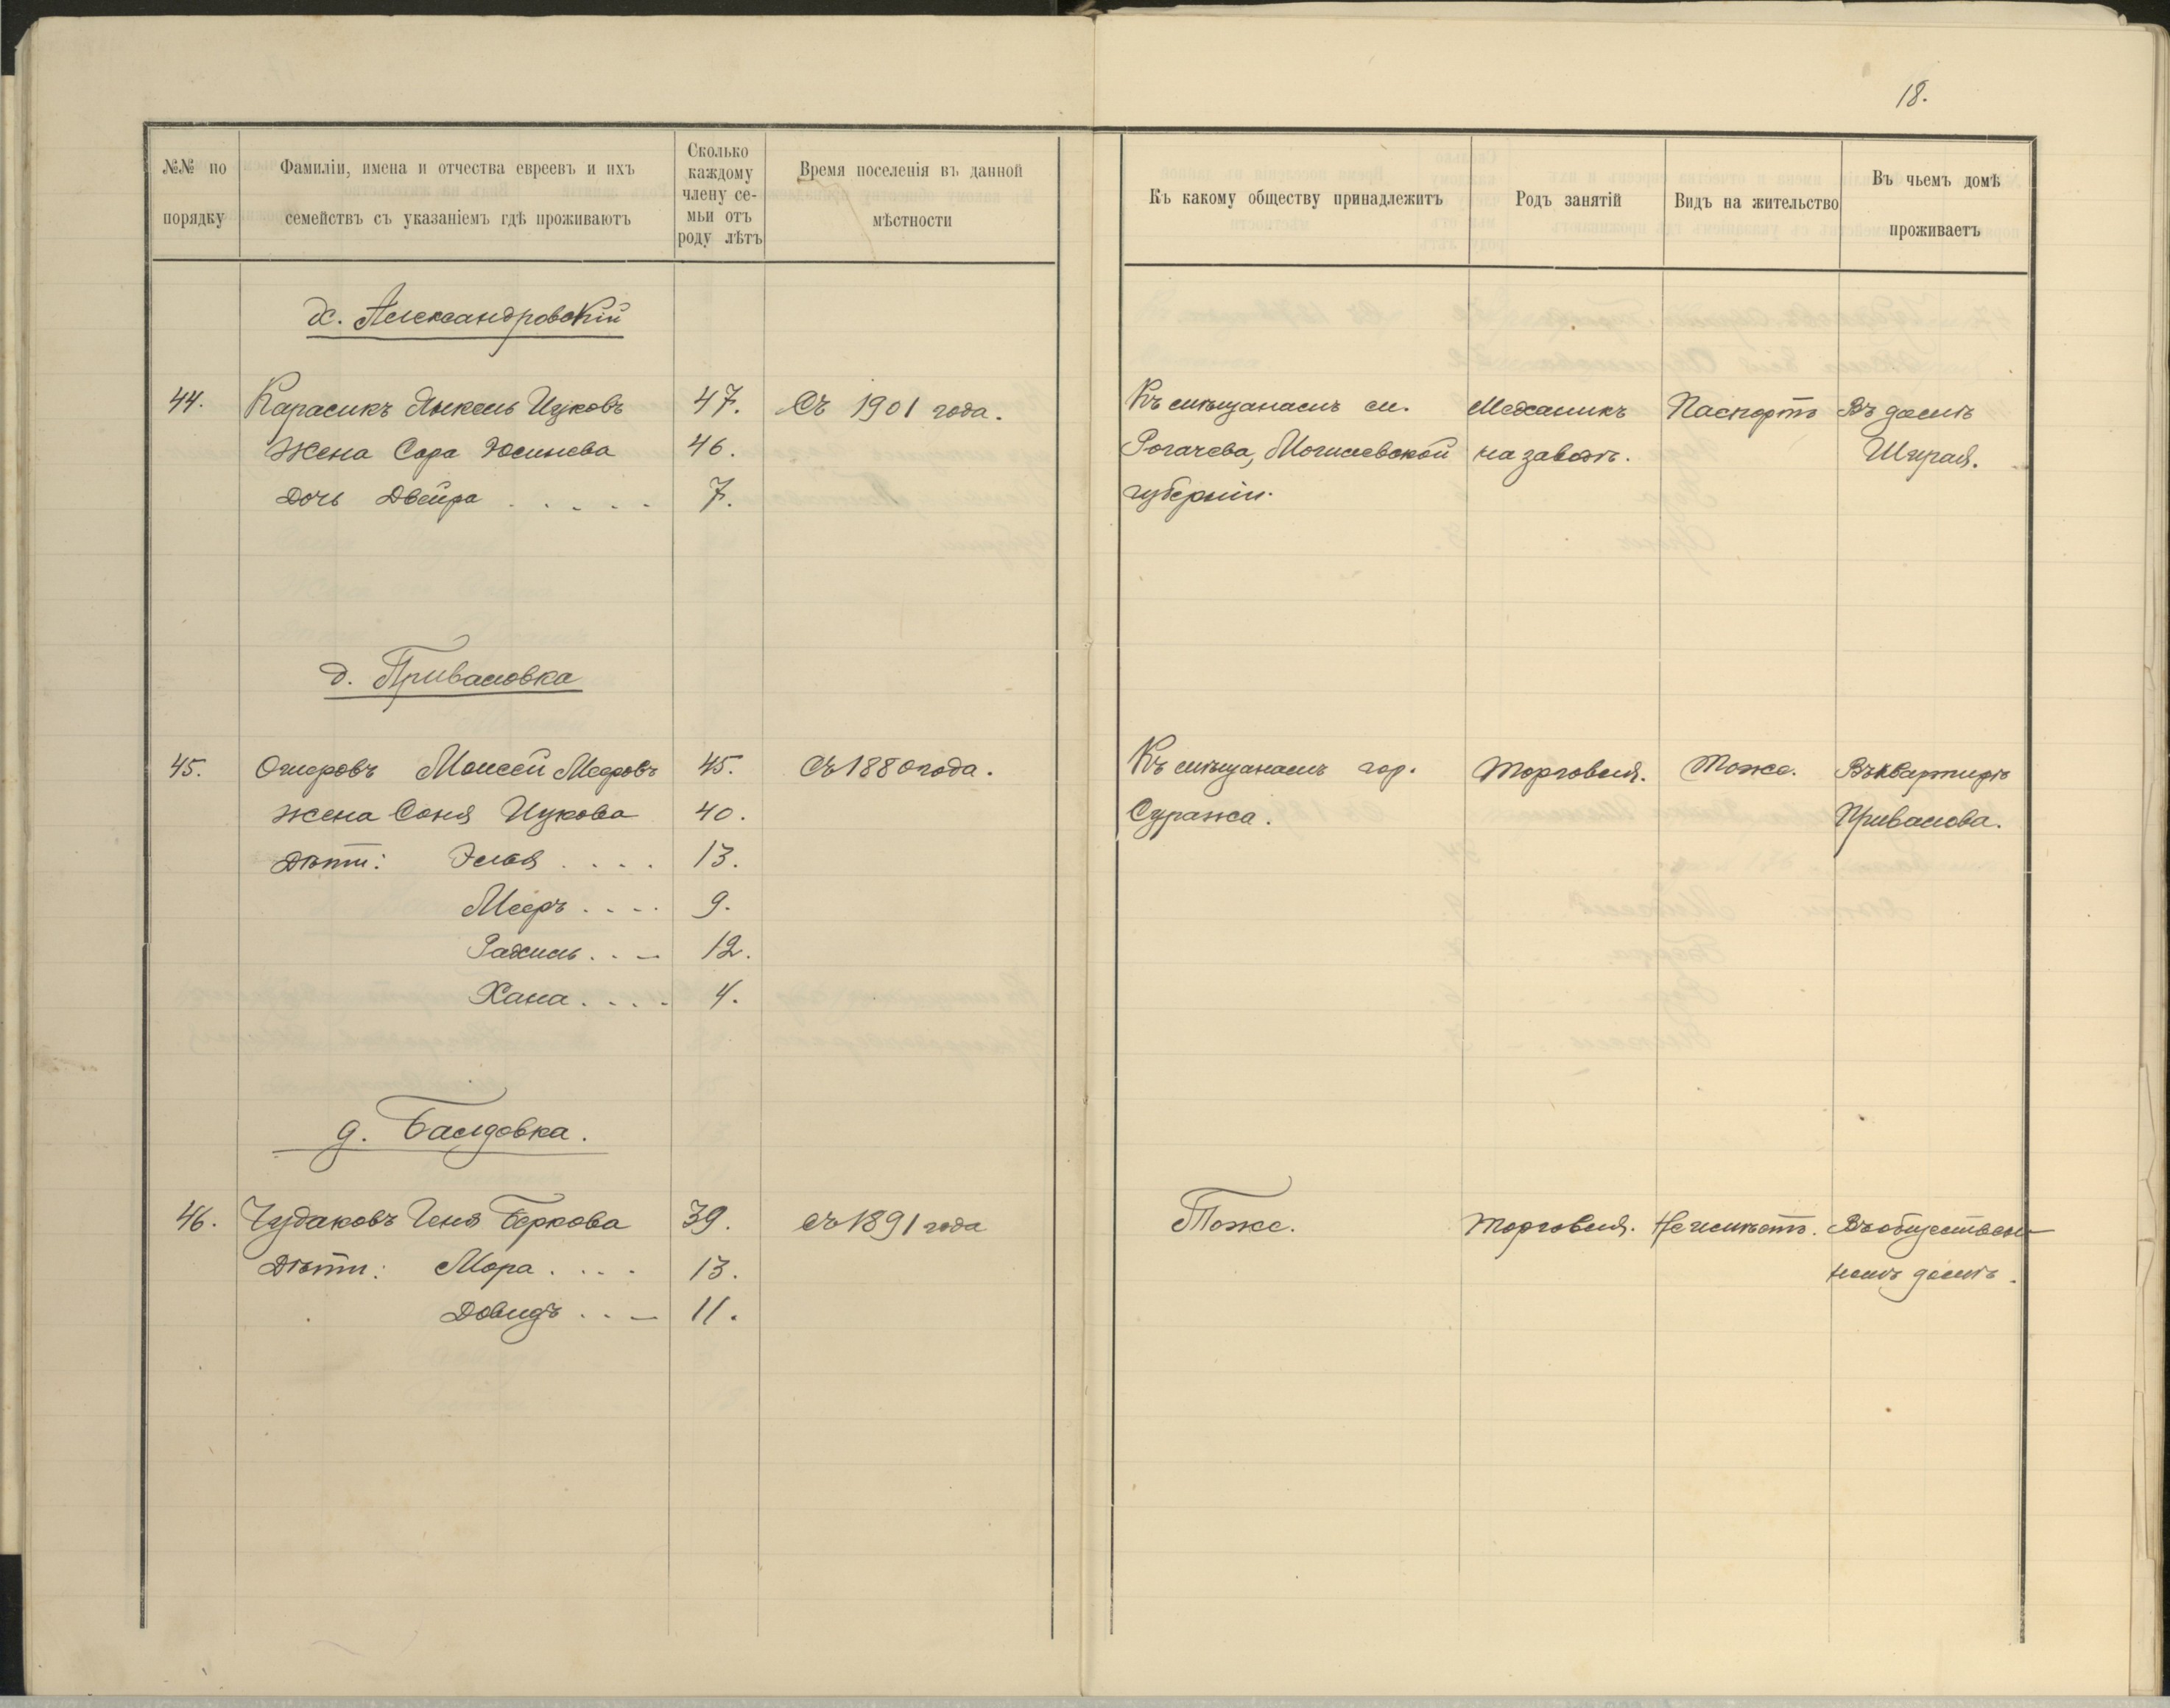 18.
№№ по порядку
Фамиліи, имена и отчества евреевъ и ихъ семействъ съ указаніемъ гдѣ проживаютъ
Сколько каждому члену се-мьи отъ роду лѣтъ
Время поселенія въ данной мѣстности
Къ какому обществу принадлежитъ
Родъ занятій
Видъ на жительство
Въ чьемъ домѣ проживаетъ
х. Александровскій
44. Карасикъ Янкель Ицковъ 47. Съ 1901 года. Къ мѣщанамъ м. Механикъ Паспортъ Въ домѣ
Жена Сора 46. Рогачева, Могилевской на заводѣ. Ширая.
Дочь Двейра . . . . . 7. губерніи.
д. Приваловка
45. Омеровъ Моисей Мееровъ 45. Съ 1880 года. Къ мѣщанамъ гор. Торговля. Тоже. Въ квартирѣ
Жена Соня Ицкова 40. Суража. Привалова.
Дѣти: Эля . . . . 13.
Мееръ . . . . 9.
Рахиль . . - 12.
Хана . . . . 4.
д. Балдовка.
46. Чудаковъ Геня Беркова 39. Съ 1891 года Тоже. Торговля. Не имѣетъ. Въ обществен-
Дѣти: Мора . . . . 13. номъ домѣ.
Довидъ . . - 11.